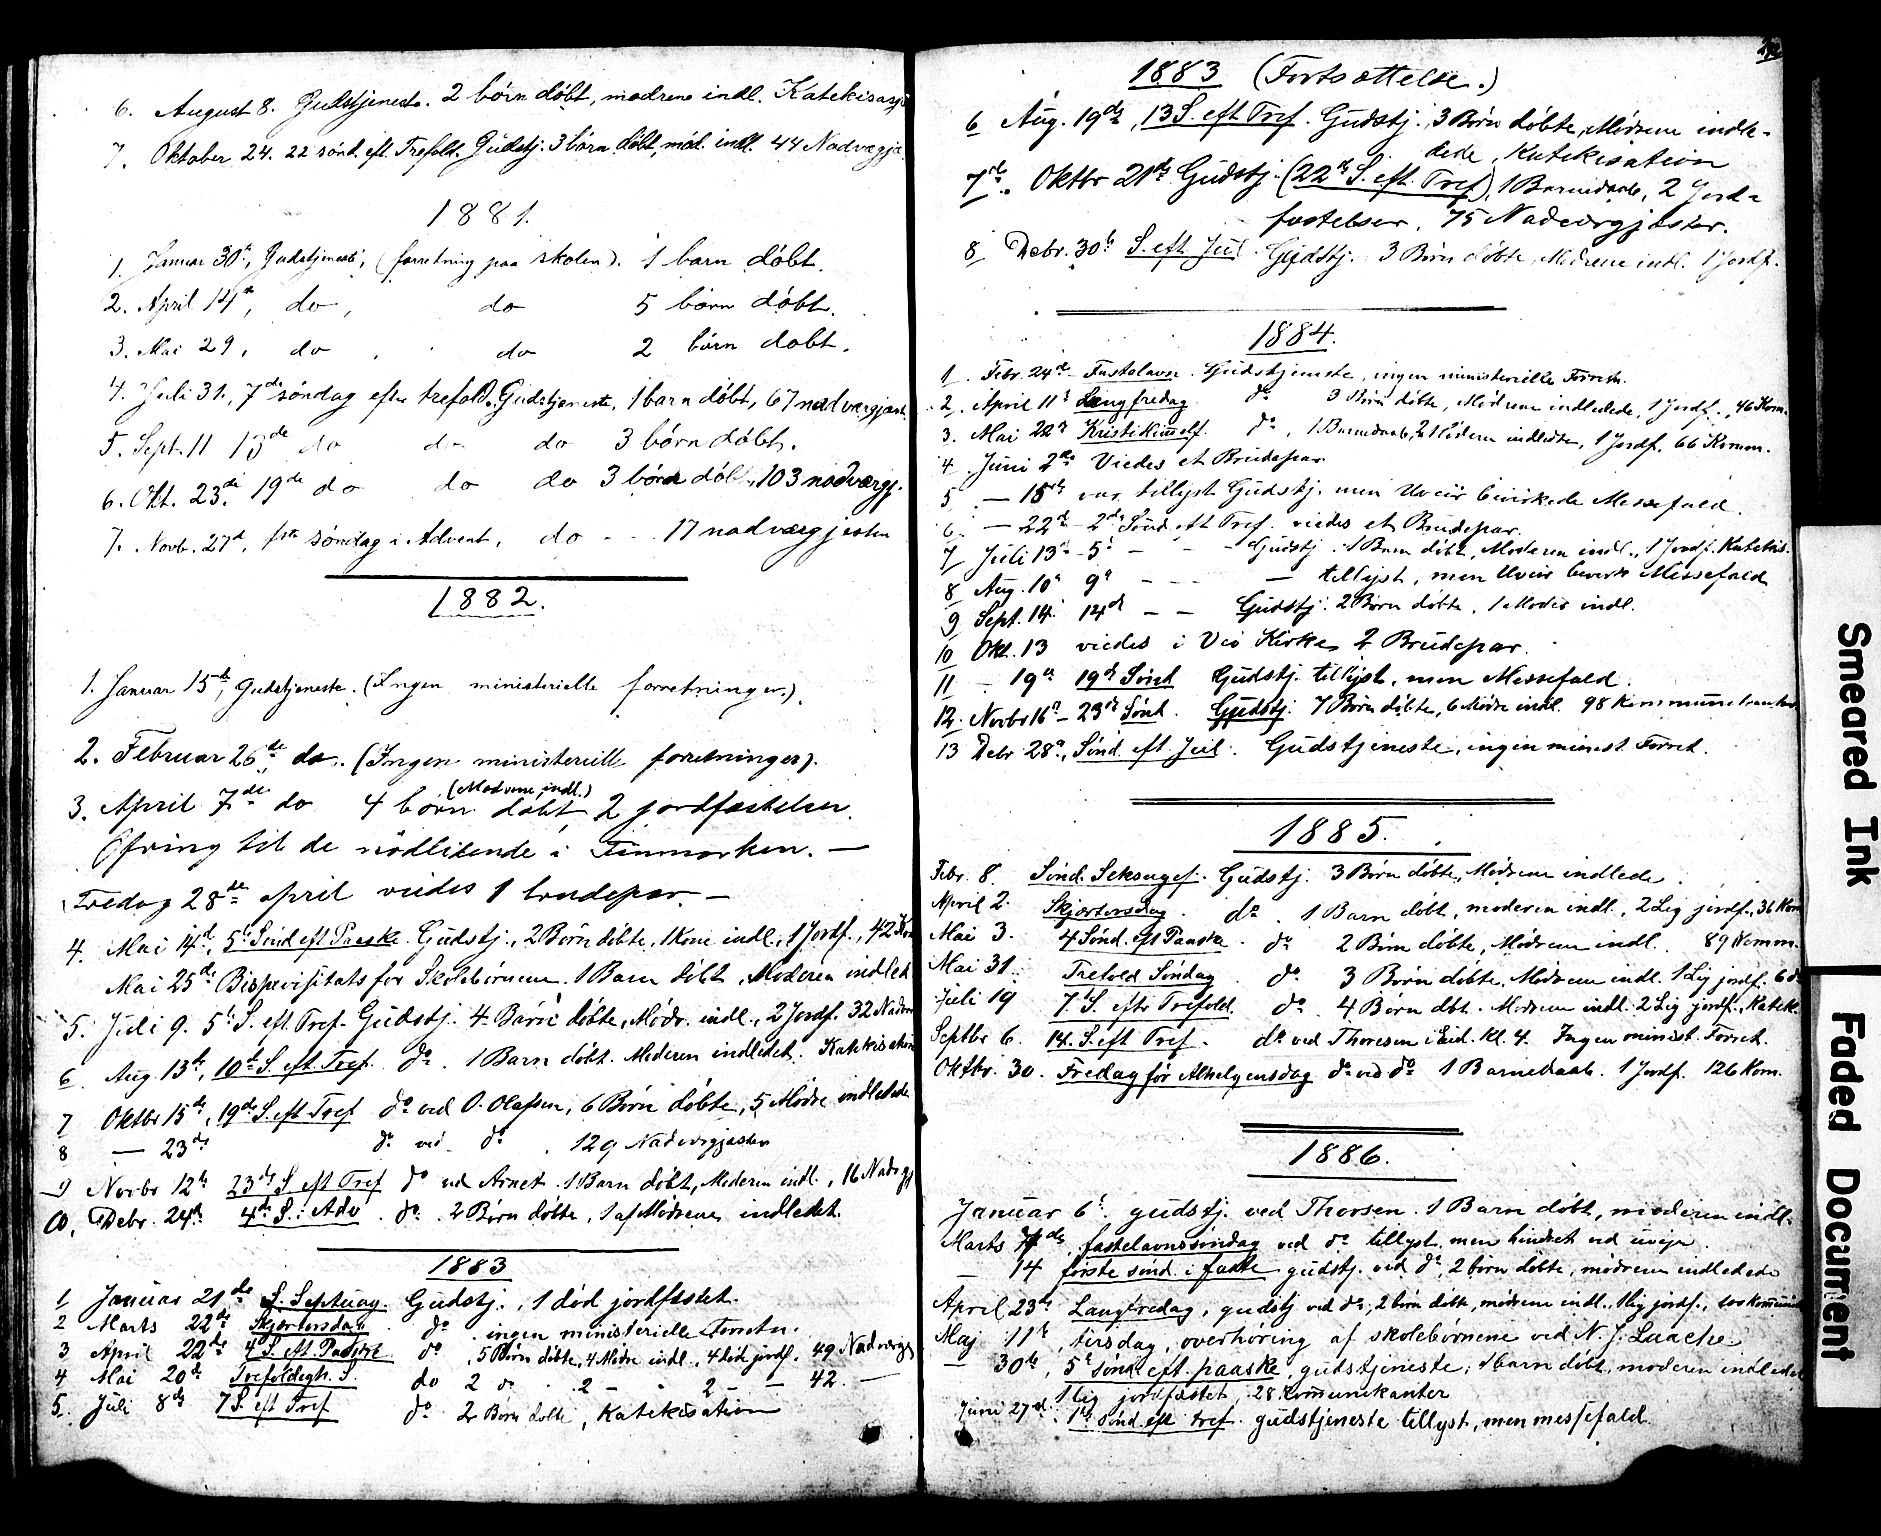 6. August 8. Gudstjeneste. 2 børn døbt, mødrene indl. Katekisasj
7. Oktober 24. 22 sønd. eft. Trefold. Gudstj. 3 børn døbt, mød. indl. 44 Nadvergjæ
1881.
1. Januar 30te, Gudstjeneste, (forretning paa skolen). 1 barn døbt.
2. April 14de, do, do 5 børn døbt.
3. Mai 29, do, do 2 børn døbt.
4. Juli 31, 7de søndag efter trefold. Gudstjeneste, 1 barn døbt, 67 nadvergjæst.
5. Sept. 11 13de do do do 3 børn døbt.
6. Okt. 23de 19de do do do 3 børn døbt, 103 nadvergj.
7. Novb. 27de, 1ste søndag i Advent, do - - 17 nadvergjester
1882.
1. Januar 15de, Gudstjeneste. (Ingen ministerielle forretninger).
2. Februar 26de do. (Ingen ministerielle forretninger).
3. April 7de do 4 børn døbt (Mødrene indl.) 2 jordfæstelser.
Ofring til de nødlidende i Finmarken. —
Fredag 28de april viedes 1 brudepar. —
4. Mai 14de, 5te Sønd eft Paaske. Gudstj., 2 Børn døbte, 1 Kone indl., 1 Jordf., 42 Kom
Mai 25de Bispevisitats for Skolebørnene. 1 Barn døbt, Moderen indled
5. Juli 9. 5te S. eft. Tref. Gudstj. 4 Børn døbte, Mødr. indl., 2 Jordf. 32 Nadver
6 Aug. 13de, 10de S. eft Tref. do. 1 Barn døbt. Moderen indledet. Katekisation
7 Oktbr 15de, 19de S. eft Tref do ved O. Olafsen, 6 Børn døbte, 5 Mødre indledede
8 — 23de do ved do. 129 Nadvergjæster
9 Novbr 12te 23de S. eft Tref do ved Arnet. 1 Barn døbt, Moderen indl., 16 Nadvgj
10. Debr. 24de 4de S. i Adv. do. 2 Børn døbte, 1 af Mødrene indledet.
1883
1 Januar 21de S. Septuag. Gudstj., 1 død jordfæstet.
2 Marts 22de Skjærtorsdag. do. ingen ministerielle Forretn.
3 April 22de 4de S. eft Paaske. do. 5 Børn døbte, 4 Mødre indl., 4 døde jordf. 49 Nadvergj
4 Mai 20de Trefoldigh. S. do 2 do. 2 - 2 - — 42. —
5. Juli 8de 7 S. eft Tref do. 2 Børn døbte, Katekisation
1883 (Fortsættelse.)
6 Aug. 19de, 13 S. eft Tref. Gudstj., 3 Børn døbte, Mødrene indle-
dede, Katekisation
7de. Oktbr 21de Gudstj. (22de S. eft. Tref), 1 Barnedaab, 2 Jord-
fæstelser, 75 Nadvergjæster.
8 Debr. 30te S. eft Jul. Gudstj. 3 Børn døbte, Mødrene indl. 1 Jordf.
1884.
1. Febr. 24de Fastelavn. Gudstjeneste, ingen ministerielle Forretn.
2. April 11te Langfredag. do. 3 Børn døbte, Mødrene indledede, 1 Jordf., 46 Kom.
3. Mai 22de Kristi Himmelf. do, 1 Barnedaab, 2 Mødre indledte, 1 Jordf. 66 Komm.
4 Juni 2de Viedes et Brudepar.
5 — 15de var tillyst Gudstj. men Uveir bevirkede Messefald.
6. — 22de 2de Sønd eft Tref. viedes et Brudepar.
7 Juli 13de 5te — — Gudstj. 1 Barn døbt, Moderen indl., 1 Jordf. Katekis.
8 Aug. 10de 9de — — — tillyst, men Uveir bevirk. Messefald
9 Sept. 14 14de — — Gudstj. 2 Børn døbte, 1 Moder indl.
10 Okt. 13 viedes i Vei Kirke 2 Brudepar.
11 — 19de 19de Sønd Gudstj. tillyst, men Messefald.
12. Novbr 16de 23de Sønd. Gudstj. 7 Børn døbte, 6 Mødre indl. 98 Kommunikanter
13 Debr 28de, Sønd. eft Jul. Gudstjeneste, ingen minist Forret.
1885.
Febr. 8. Sønd. Seksagef. Gudstj. 3 Børn døbte, Mødrene indlede
April 2. Skjærtorsdag. do. 1 Barn døbt, moderen indl., 2 Lig jordf., 36 Kom
Mai 3. 4 Sønd. eft Paaske. do 2 Børn døbte, Mødrene indl. 89 Komm.
Mai 31. Trefold Søndag do. 3 Børn døbte, Mødrene indl. 1 Lig jordf. 6 do
Juli 19 7de S. eftr Trefold. do. 4 Børn døbt. Mødrene indl. 2 Lig jordf., Katek.
Septbr 6. 14. S. eft Tref. do ved Thoresen i Eid. kl. 4. Ingen minist. Forret.
Oktbr. 30. Fredag før Alhelgensdag do ved do 1 Barnedaab. 1 Jordf. 126 Kom.
1886.
Januar 6te. gudstj. ved Thoresen. 1 Barn døbt, moderen indl.
Marts 7de, fastelavnssøndag ved do tillyst, men hindret ved uvejr.
— 14 første sønd. i faste gudstj. ved do, 2 børn døbte, mødrene indledede
April 23de Langfredag, gudstj ved do, 2 børn døbte, mødrene indl., 1 lig jordf., 100 kommunik
Maj 11te, tirsdag, overhøring af skolebørnene ved N. J. Laache
— 30te, 5te sønd. eft. paaske, gudstjeneste, 1 barn døbt, moderen indledet
1 lig jordfæstet, 28 Kommunikanter
Juni 27de. 1ste sønd. eft tref. gudstjeneste tillyst, men messefald.
Smeared Ink
Faded Document